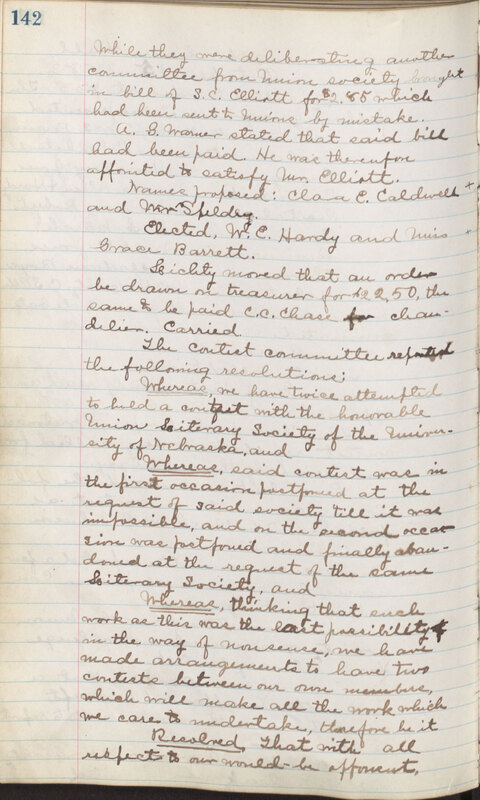 142
While they were deliberating another
committee from Union society brought
in bill of S.C. Elliott for $2.85 which
had been sent to Unions by mistake.
A. G. Warner stated that said bill
had been paid. He was thereupon
appointed to satisfy Mr. Elliott.
Names proposed: Clara E. Caldwell +
and Wm
Elected, W. E. Hardy and Miss +
Grace Barrett.
Lichty moved that an order
be drawn on treasurer for $22,50, the
same to be paid C.C. Chase for chan-
delier. Carried
The contest committee reported
the following resolutions:
Whereas, we have twice attempted
to hold a contest with the honorable
Union Literary Society of the Univer-
sity of Nebraska, and
Whereas, said contest was in
the first occasion postponed at the
request of said society till it was
impossible, and on the second occa-
sion was postponed and finally aban-
doned at the request of the same
Literary Society, and
Whereas, thinking that such
work as this was the last possibility of
in the way of nonsense, we have
made arrangements to have two
contests between our own members,
which will make all the work which
we care to undertake, therefore be it
Resolved, That with all
respect to our would-be opponent,